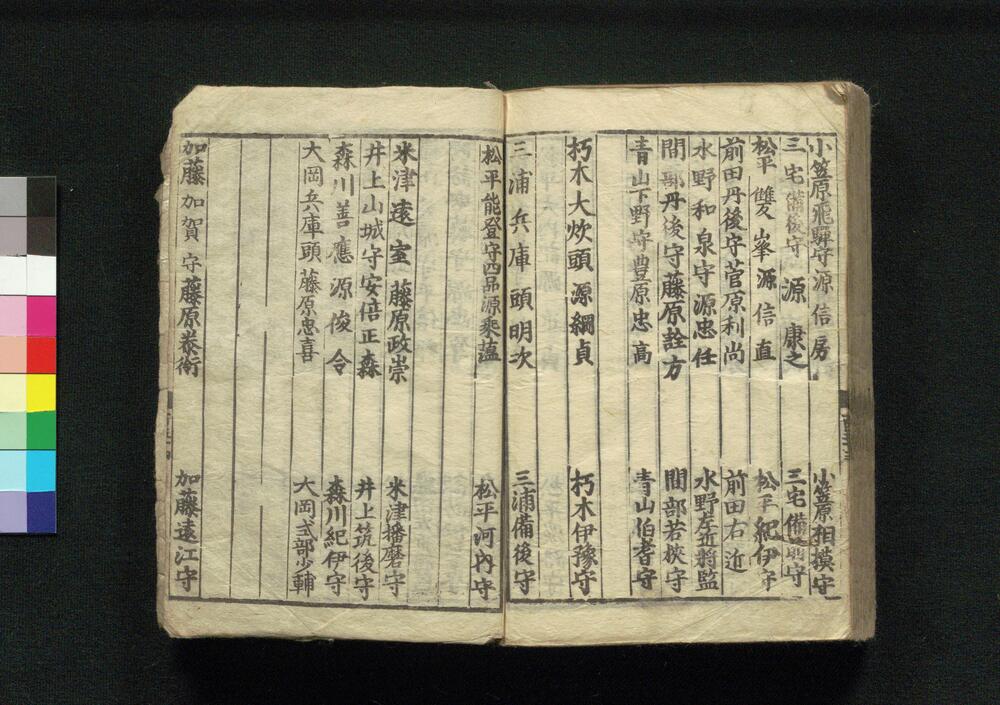 小笠原飛騨守源信房 小笠原相摸守
三宅備後守源康之 三宅備前守
松平雙峯源信直 松平紀伊守
前田丹後守菅原利尚 前田右近
水野和泉守源忠任 水野左近将監
間部丹後守藤原詮方 間部若狹守
青山下野守豊原忠高 青山伯耆守
朽木大炊頭源綱貞 朽木伊豫守
三浦兵庫頭明次 三浦備後守
松平能登守四品源乘薀 松平河内守
米津遠室藤原政崇 米津播磨守
井上山城守安倍正森 井上筑後守
森川善應源俊令 森川紀伊守
大岡兵庫頭藤原忠喜 大岡式部少輔
加藤加賀守藤原泰衑 加藤遠江守